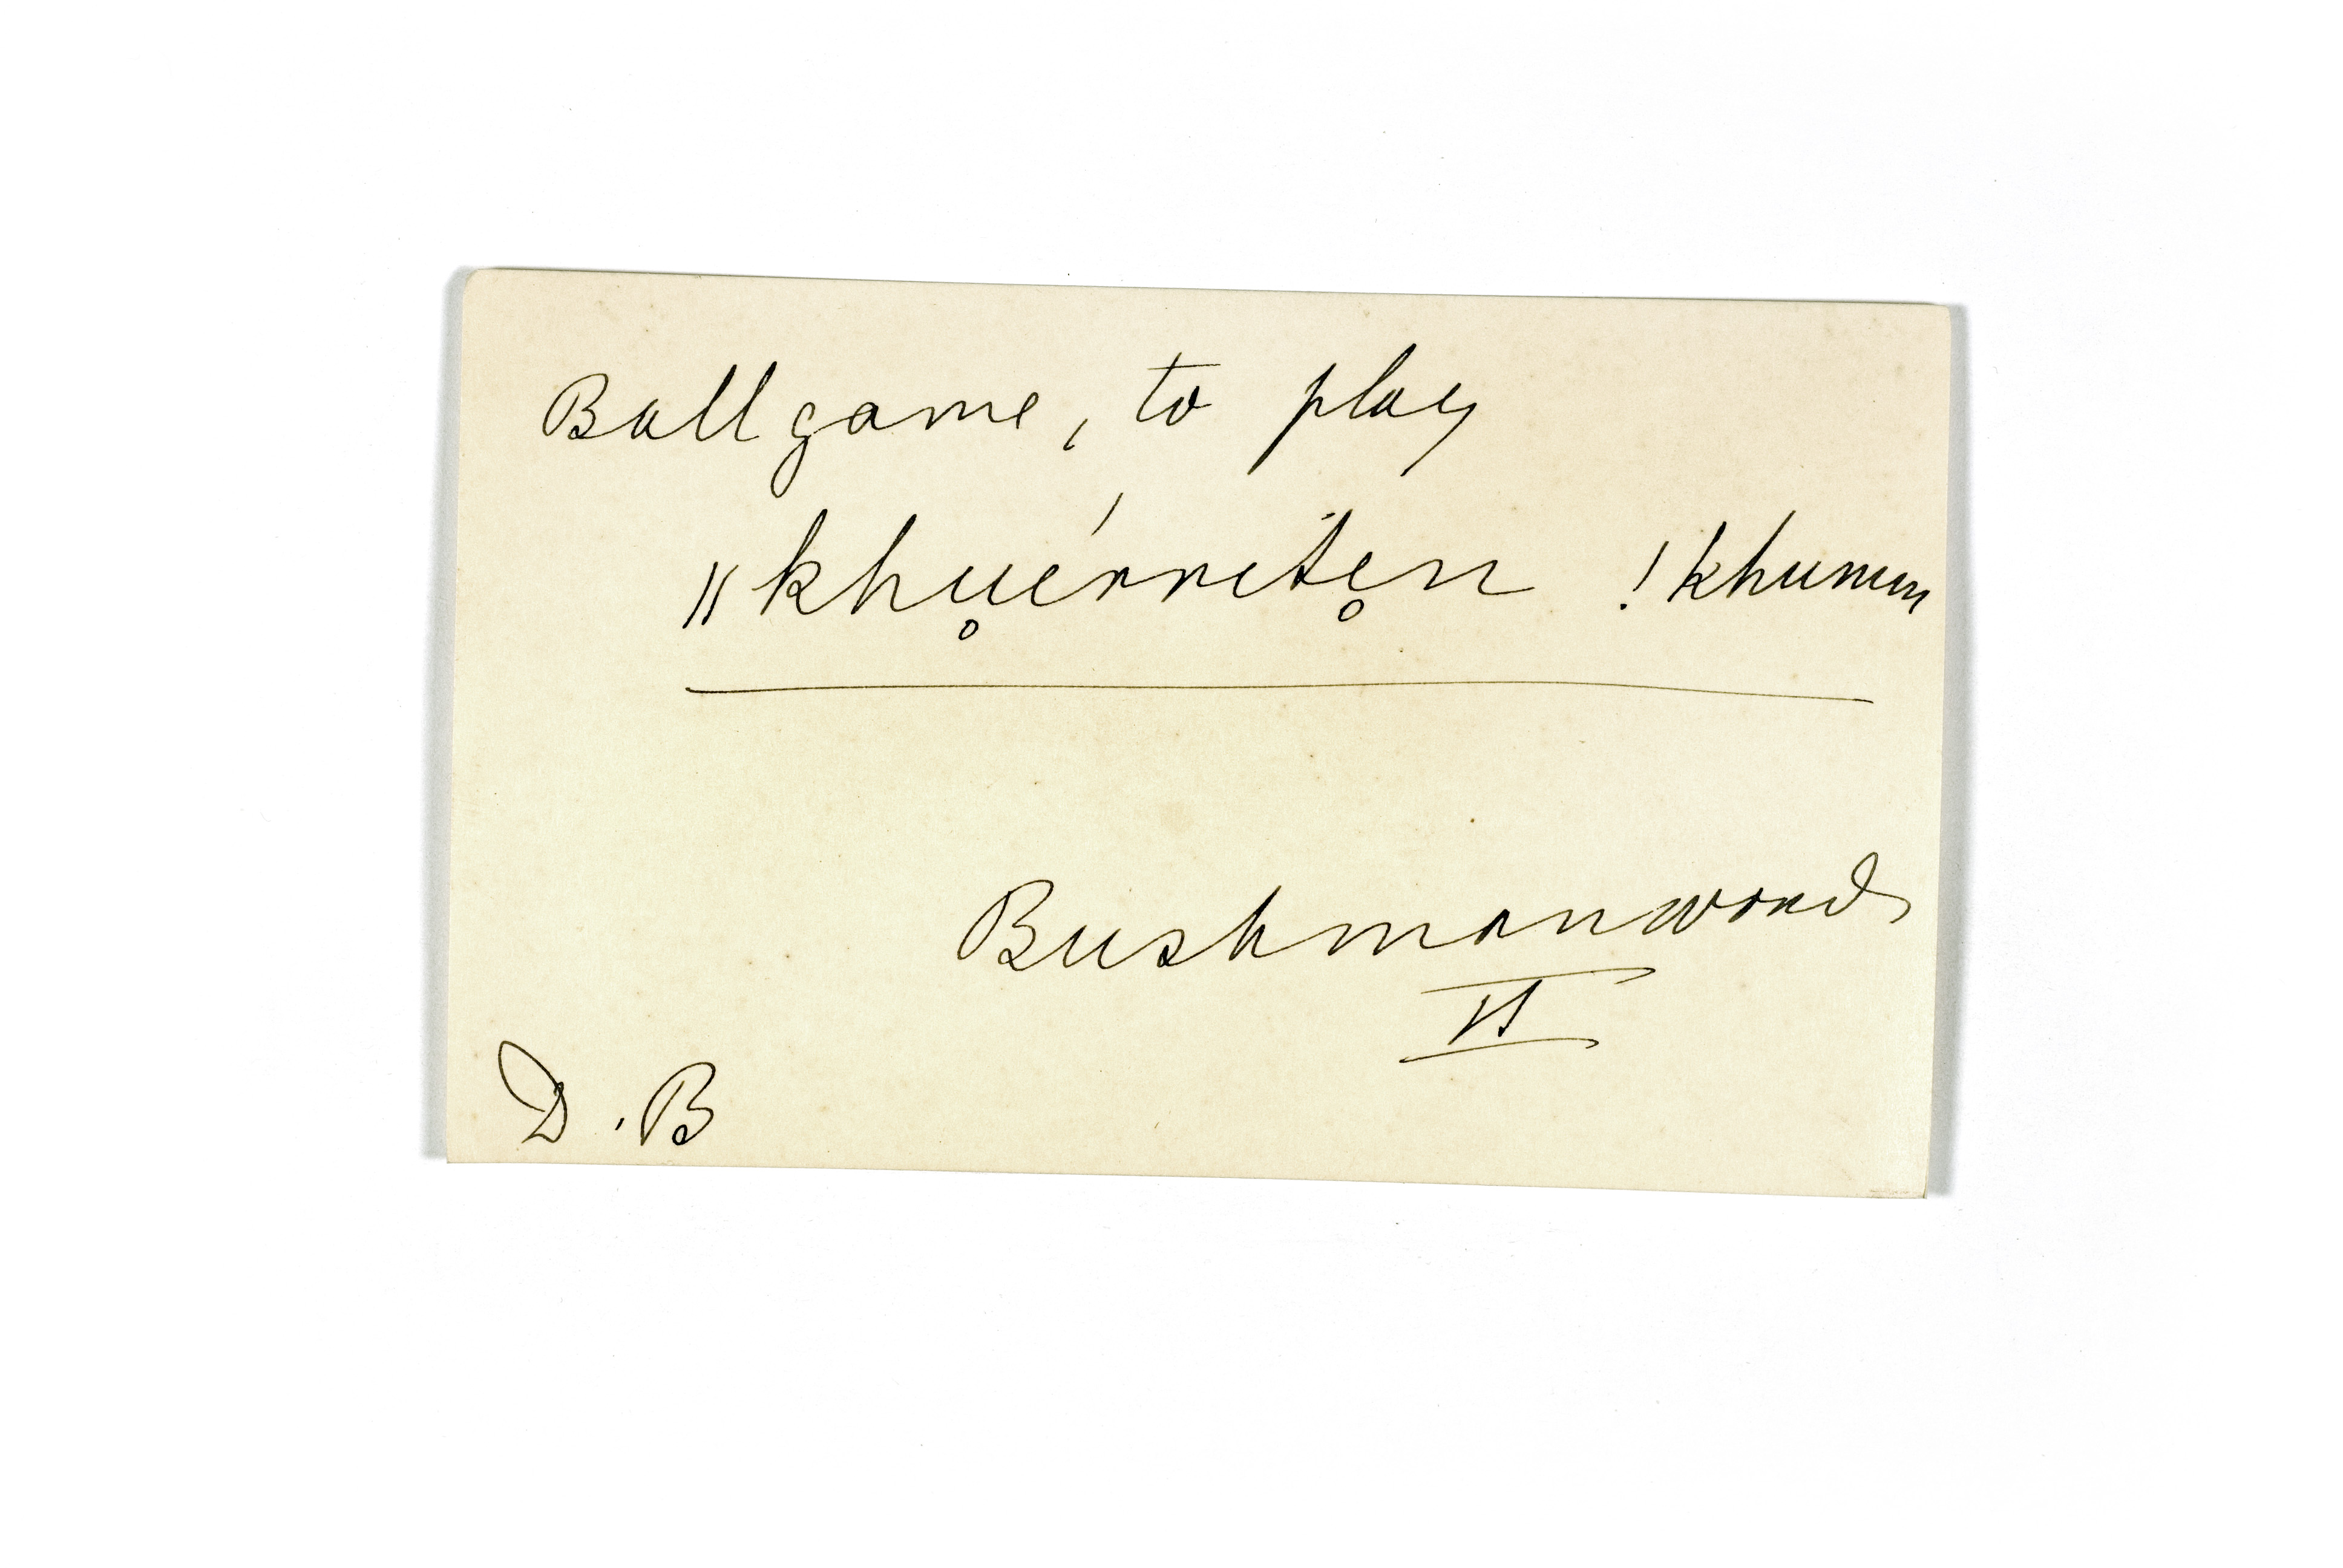 Ball game, to play
ǁkhu̥érritḛ̥n !khumm
Bushman words
VI
D.B